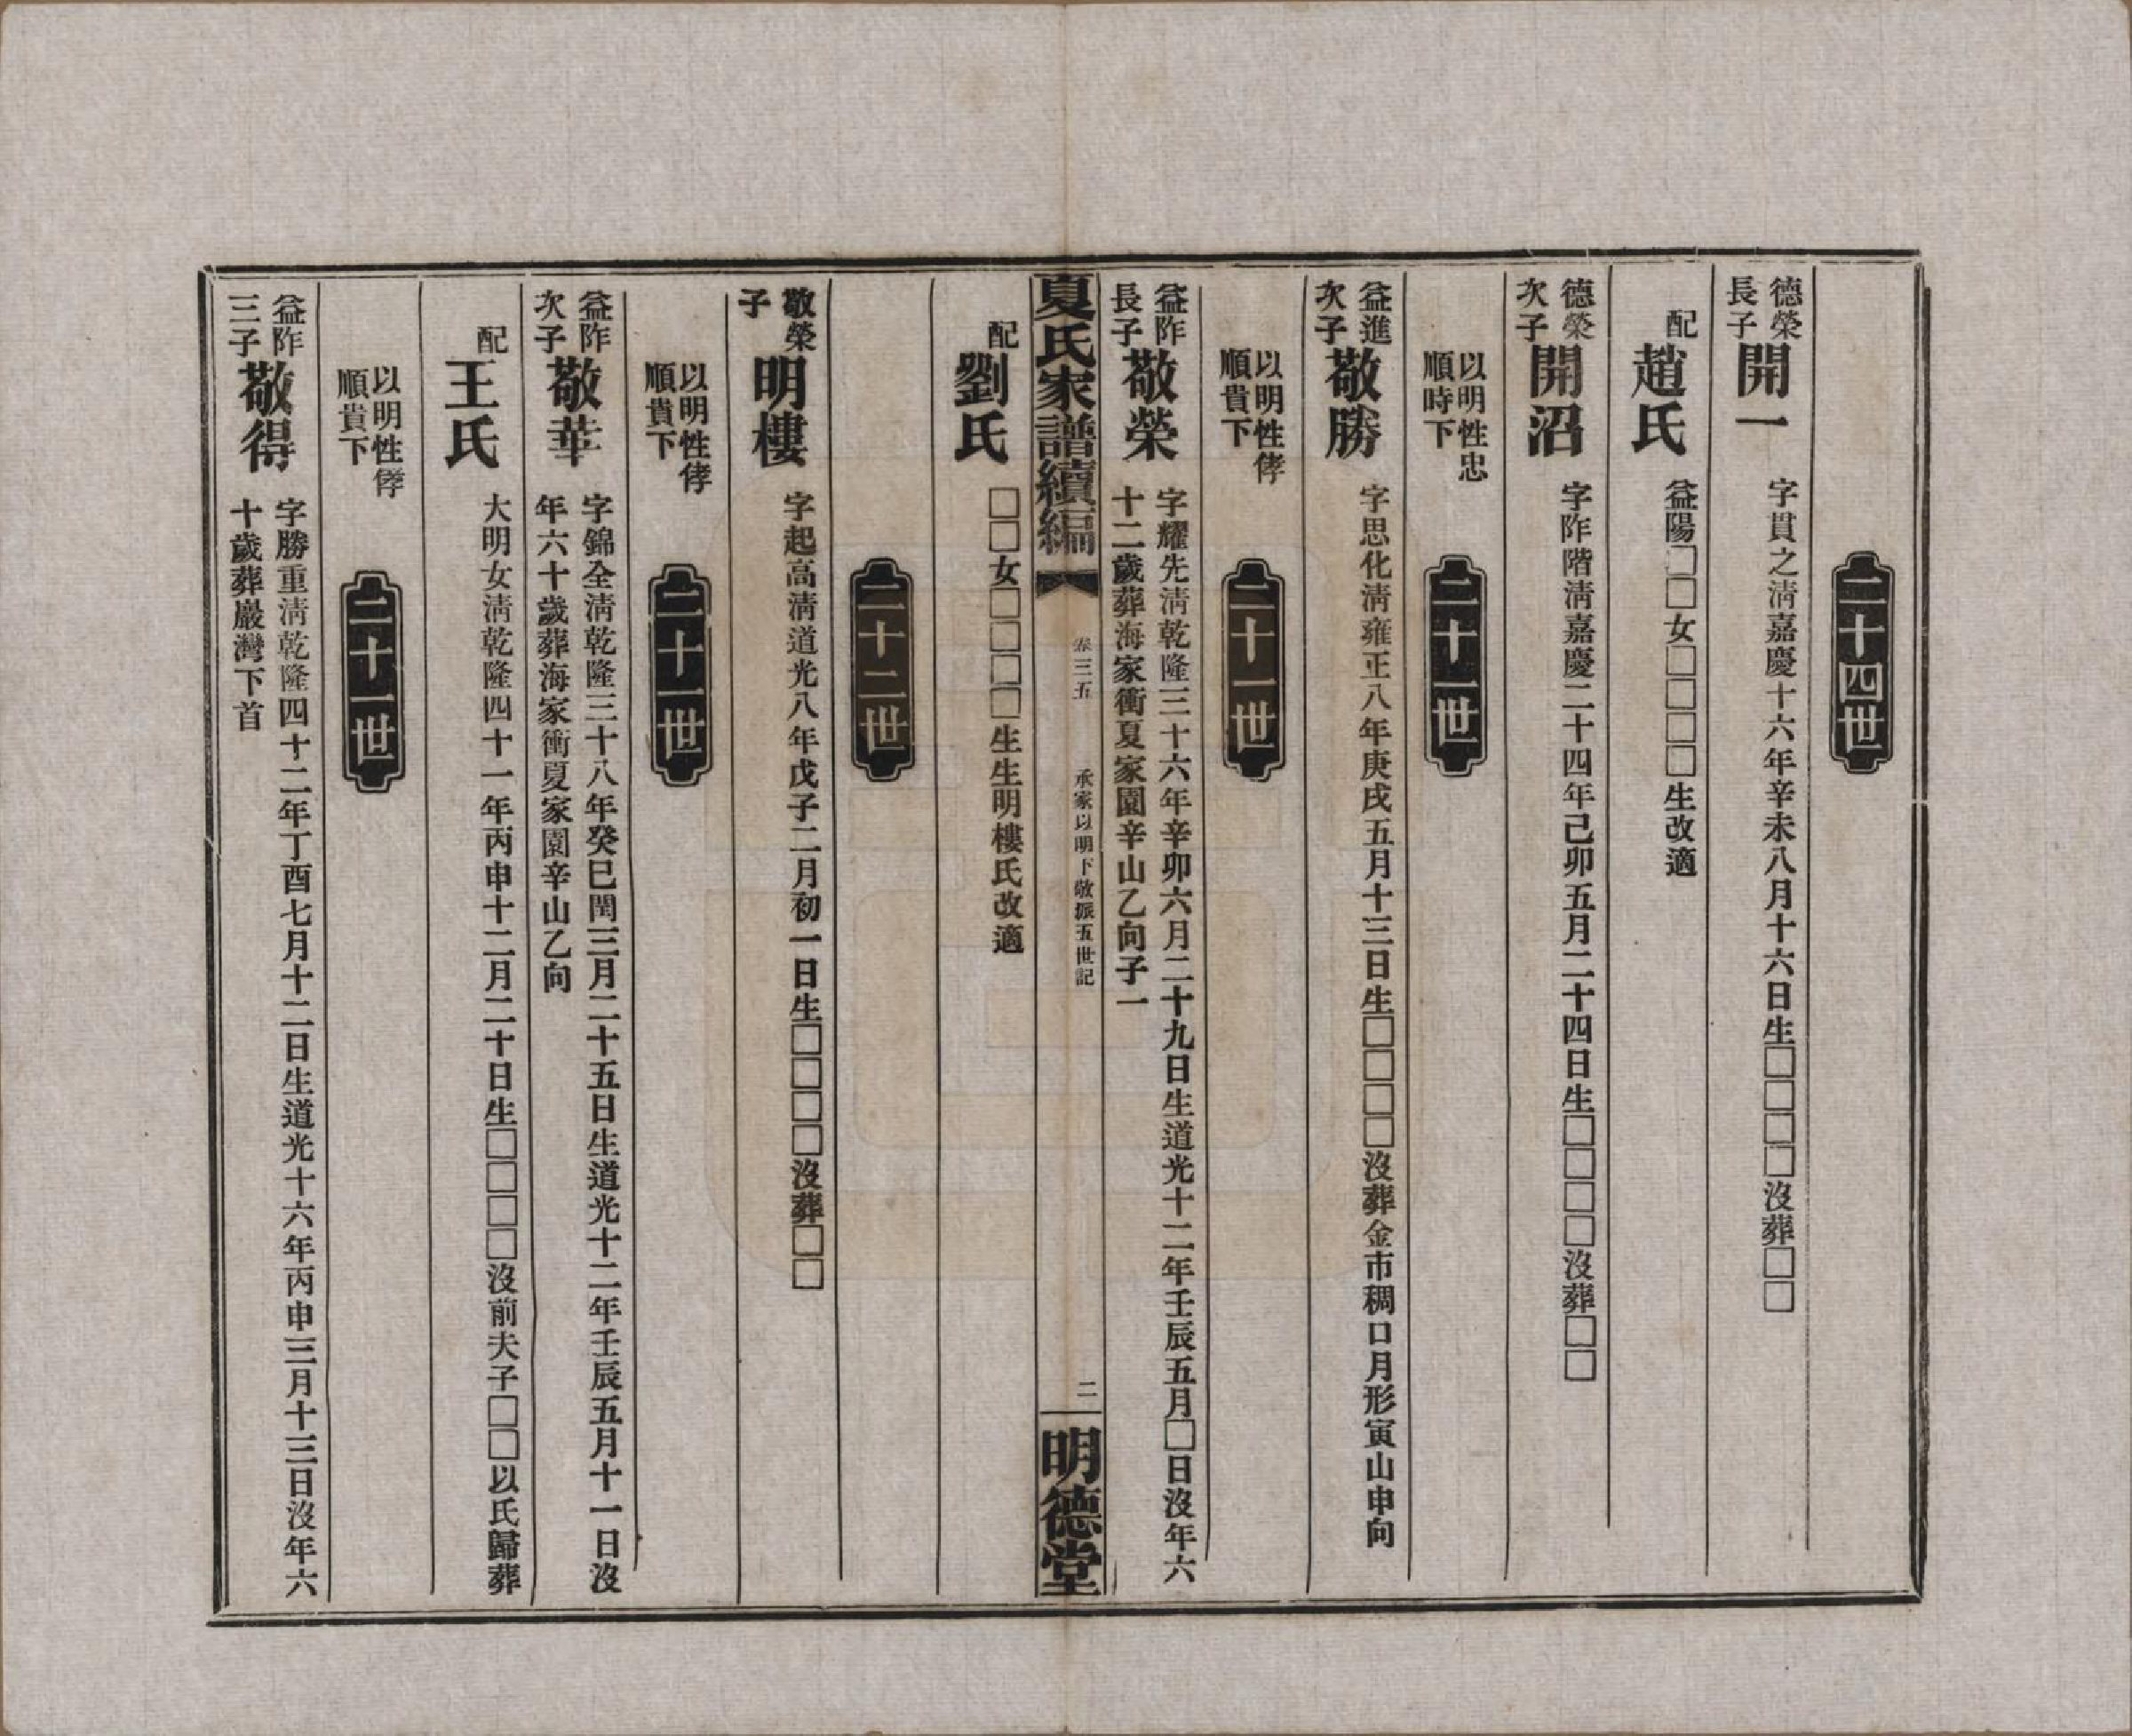 二十四世
德榮長子
開一
字貫之淸嘉慶十六年辛未八月十六日生□□□□沒葬□□
配
趙氏
益陽□□女□□□□生改適
德榮次子
開沼
字阼階淸嘉慶二十四年己卯五月二十四日生□□□□沒葬□□
以明性忠
順時下
二十一世
益進次子
敬勝
字思化淸雍正八年庚戌五月十三日生□□□□沒葬金市稠口月形寅山申向
以明性侾
順貴下
二十一世
益阼長子
敬榮
字耀先淸乾隆三十六年辛卯六月二十九日生道光十二年壬辰五月□日沒年六
十二歲葬海家衝夏家園辛山乙向子一
夏氏家譜續編
卷三五
承家以明下敬派五世記
二
明德堂
配
劉氏
□□女□□□□生生明樓氏改適
二十二世
敬榮子
明樓
字起高淸道光八年戊子二月初一日生□□□□沒葬□□
以明性侾
順貴下
二十一世
益阼次子
敬華
字錦全淸乾隆三十八年癸巳閏三月二十五日生道光十二年壬辰五月十一日沒
年六十歲葬海家衝夏家園辛山乙向
配
王氏
大明女淸乾隆四十一年丙申十二月二十日生□□□□沒前夫子□□以氏歸葬
以明性侾
順貴下
二十一世
益阼三子
敬得
字勝重淸乾隆四十二年丁酉七月十二日生道光十六年丙申三月十三日沒年六
十歲葬巖灣下首